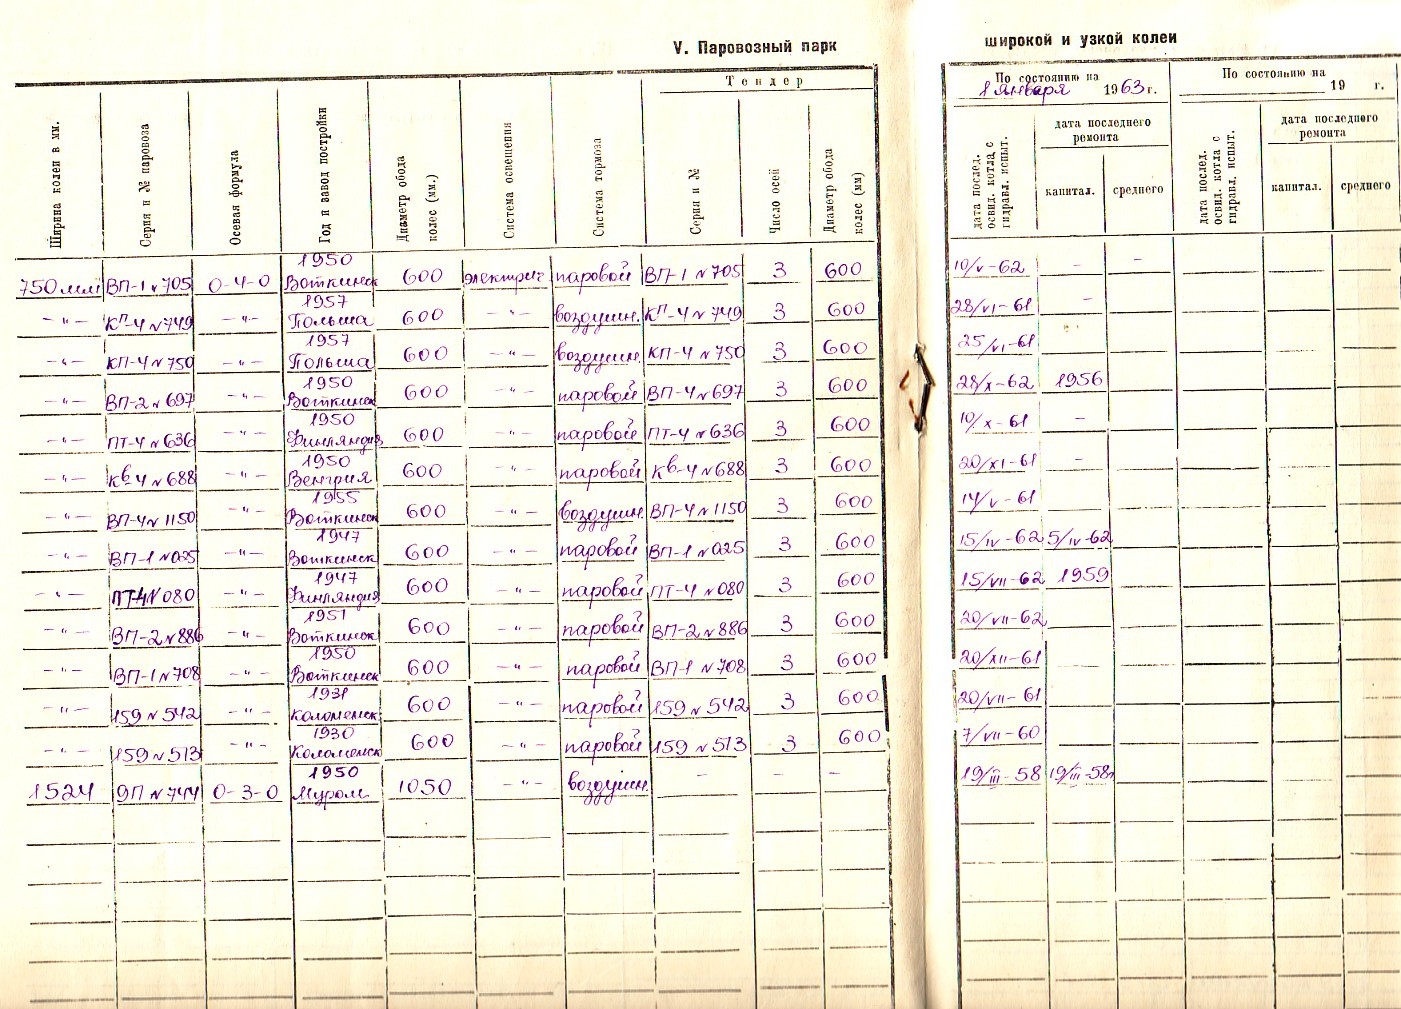 V. Паровозный парк широкой и узкой колеи
Ширина колеи в мм. Серия и № паровоза Осевая формула Год и завод постройки Диаметр обода колес (мм.) Система освещения Система тормоза Тендер Серия и № Число осей Диаметр обода колес (мм)
По состоянию на 1 января 1963 г. дата послед. освид. котла с гидравл. испыт. дата последнего ремонта капитал. среднего
По состоянию на 19 г. дата послед. освид. котла с гидравл. испыт. дата последнего ремонта капитал. среднего
750 мм ВП-1 № 705 0-4-0 1950 Воткинск 600 электрич паровой ВП-1 № 705 3 600 10/V-62 - -
-"- КП-4 № 749 -"- 1957 Польша 600 -"- воздушн. КП-4 № 749 3 600 28/VI-61 -
-"- КП-4 № 750 -"- 1957 Польша 600 -"- воздушн. КП-4 № 750 3 600 25/VI-61
-"- ВП-2 № 697 -"- 1950 Воткинск 600 -"- паровой ВП-4 № 697 3 600 28/X-62 1956
-"- ПТ-4 № 636 -"- 1950 Финляндия 600 -"- паровой ПТ-4 № 636 3 600 10/X-61 -
-"- Кв-4 № 688 -"- 1950 Венгрия 600 -"- паровой Кв-4 № 688 3 600 20/XI-61 -
-"- ВП-4 № 1150 -"- 1955 Воткинск 600 -"- воздушн. ВП-4 № 1150 3 600 14/V-61 -
-"- ВП-1 № 025 -"- 1947 Воткинск 600 -"- паровой ВП-1 № 025 3 600 15/IV-62 5/IV-62
-"- ПТ-4 № 080 -"- 1947 Финляндия 600 -"- паровой ПТ-4 № 080 3 600 15/VII-62 1959
-"- ВП-2 № 886 -"- 1951 Воткинск 600 -"- паровой ВП-2 № 886 3 600 20/VII-62
-"- ВП-1 № 708 -"- 1950 Воткинск 600 -"- паровой ВП-1 № 708 3 600 20/XII-61
-"- 159 № 542 -"- 1931 Коломенск 600 -"- паровой 159 № 542 3 600 20/VII-61
-"- 159 № 513 -"- 1930 Коломенск 600 -"- паровой 159 № 513 3 600 7/VII-60
1524 9П № 744 0-3-0 1950 Муром 1050 -"- воздушн. - - - 19/III-58 19/III-58